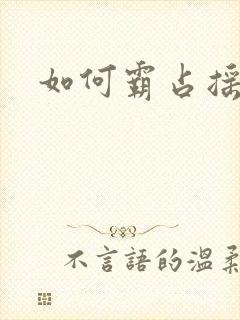 如何霸占摇
不言語的溫柔